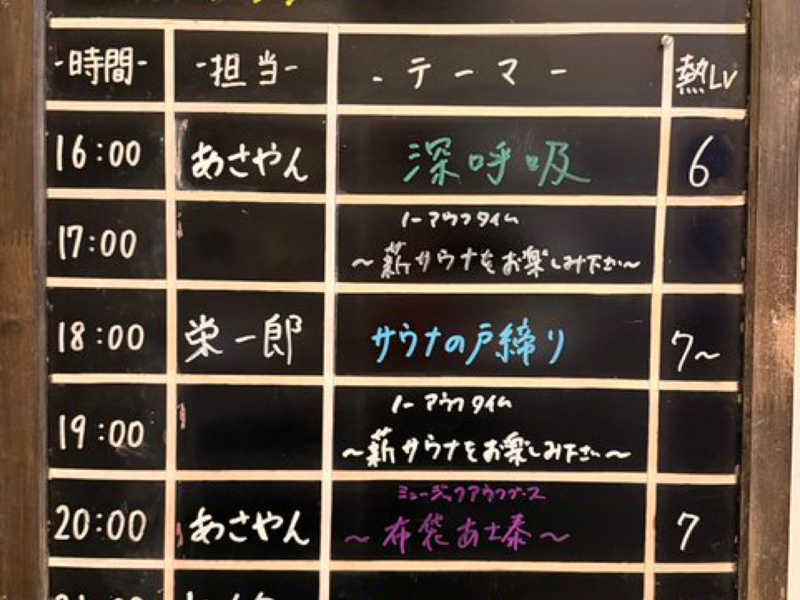 -時間- -担当- -テーマー- 熱Lv
16:00 あさやん 深呼吸 6
17:00 ノーアウフタイム
~薪サウナをお楽しみ下さい~
18:00 栄一郎 サウナの戸締り 7~
19:00 ノーアウフタイム
~薪サウナをお楽しみ下さい~
ミュージックアウフグース
20:00 あさやん ~布袋あ士泰~ 7